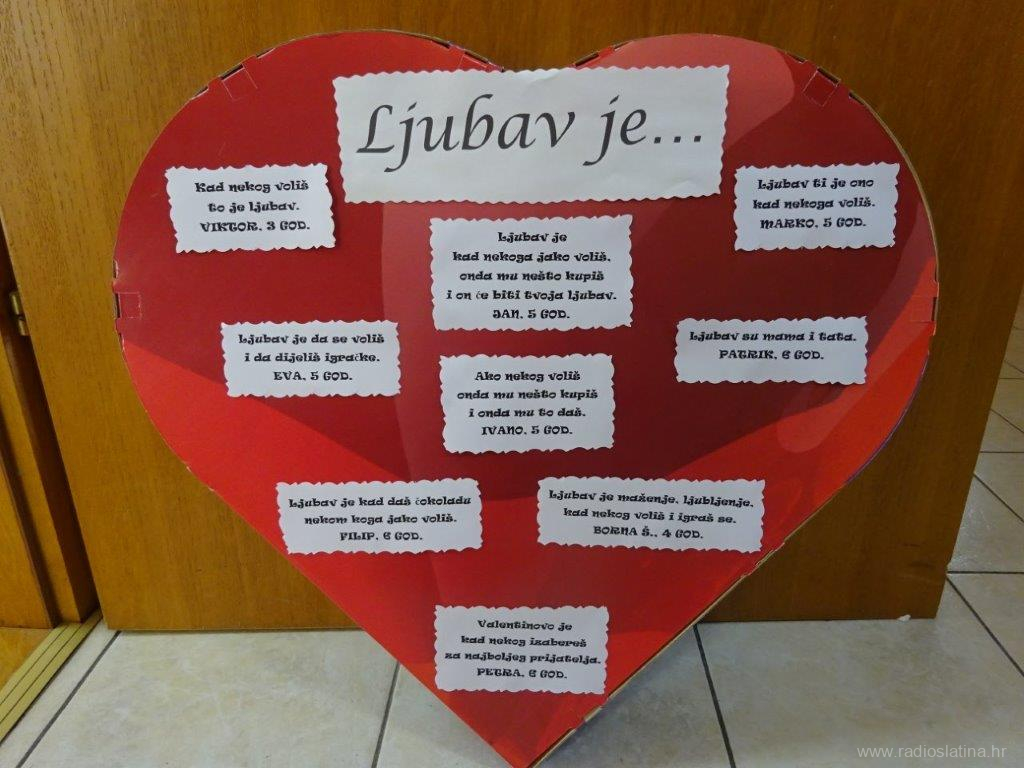 Ljubav je...
Kad nekog voliš
to je ljubav.
VIKTOR, 3 GOD.
Ljubav ti je ono
kad nekoga voliš.
MARKO, 5 GOD.
Ljubav je
kad nekoga jako voliš,
onda mu nešto kupiš
i on će biti tvoja ljubav.
JAN, 5 GOD.
Ljubav je da se voliš
i da dijeliš igračke.
EVA, 5 GOD.
Ljubav su mama i tata.
PATRIK, 6 GOD.
Ako nekog voliš
onda mu nešto kupiš
i onda mu to daš.
IVANO, 5 GOD.
Ljubav je kad daš čokoladu
nekom koga jako voliš.
FILIP, 6 GOD.
Ljubav je maženje, ljubljenje,
kad nekog voliš i igraš se.
BORNA Š., 4 GOD.
Valentinovo je
kad nekog izabereš
za najboljeg prijatelja.
PETRA, 6 GOD.
www.radioslatina.hr